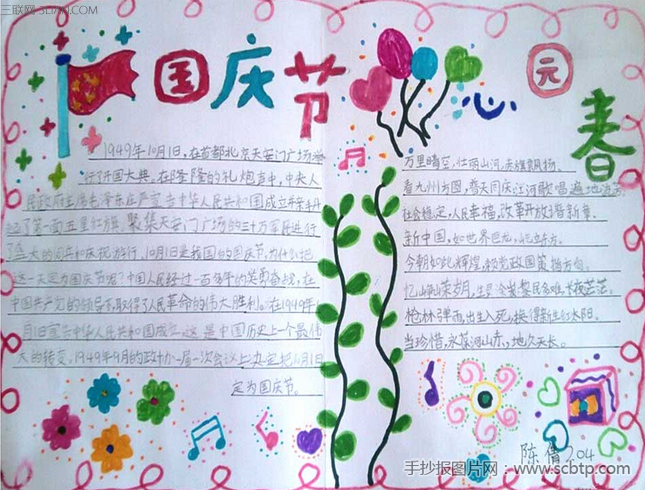 三联网 3LIAN.COM
国庆节
心
元
春
1949年10月1日，在首都北京天安门广场举
行了开国大典，在隆隆的礼炮声中，中央人
民政府主席毛泽东庄严宣告中华人民共和国成立并亲手升
起了第一面五星红旗。聚集天安门广场的三十万军民进行
了盛大的阅兵和庆祝游行，10月1日是我国的国庆节，为什么把
这一天定为国庆节呢？中国人民经过一百多年的英勇奋战，在
中国共产党的领导下，取得了人民革命的伟大胜利。在1949年
月1日宣告中华人民共和国成立，这是中国历史上一个最伟
大的转变。1949年9月的政协一届一次会议上决定把10月1日
定为国庆节。
万里晴空，红雨山河，赤旗飘扬。
看九州方圆，普天同庆，江河歌唱，遍地
社会稳定，人民幸福，改革开放谱新章。
新中国，如世界巨龙，屹立东方。
今朝如此辉煌，赖党政国策指方向。
忆峥嵘岁月，生灵涂炭，黎民多难，长夜茫茫。
枪林弹雨，出生入死，换得新生红太阳。
当珍惜，永葆江山赤，地久天长。
陈倩 204
手抄报图片网：www.scbtp.com